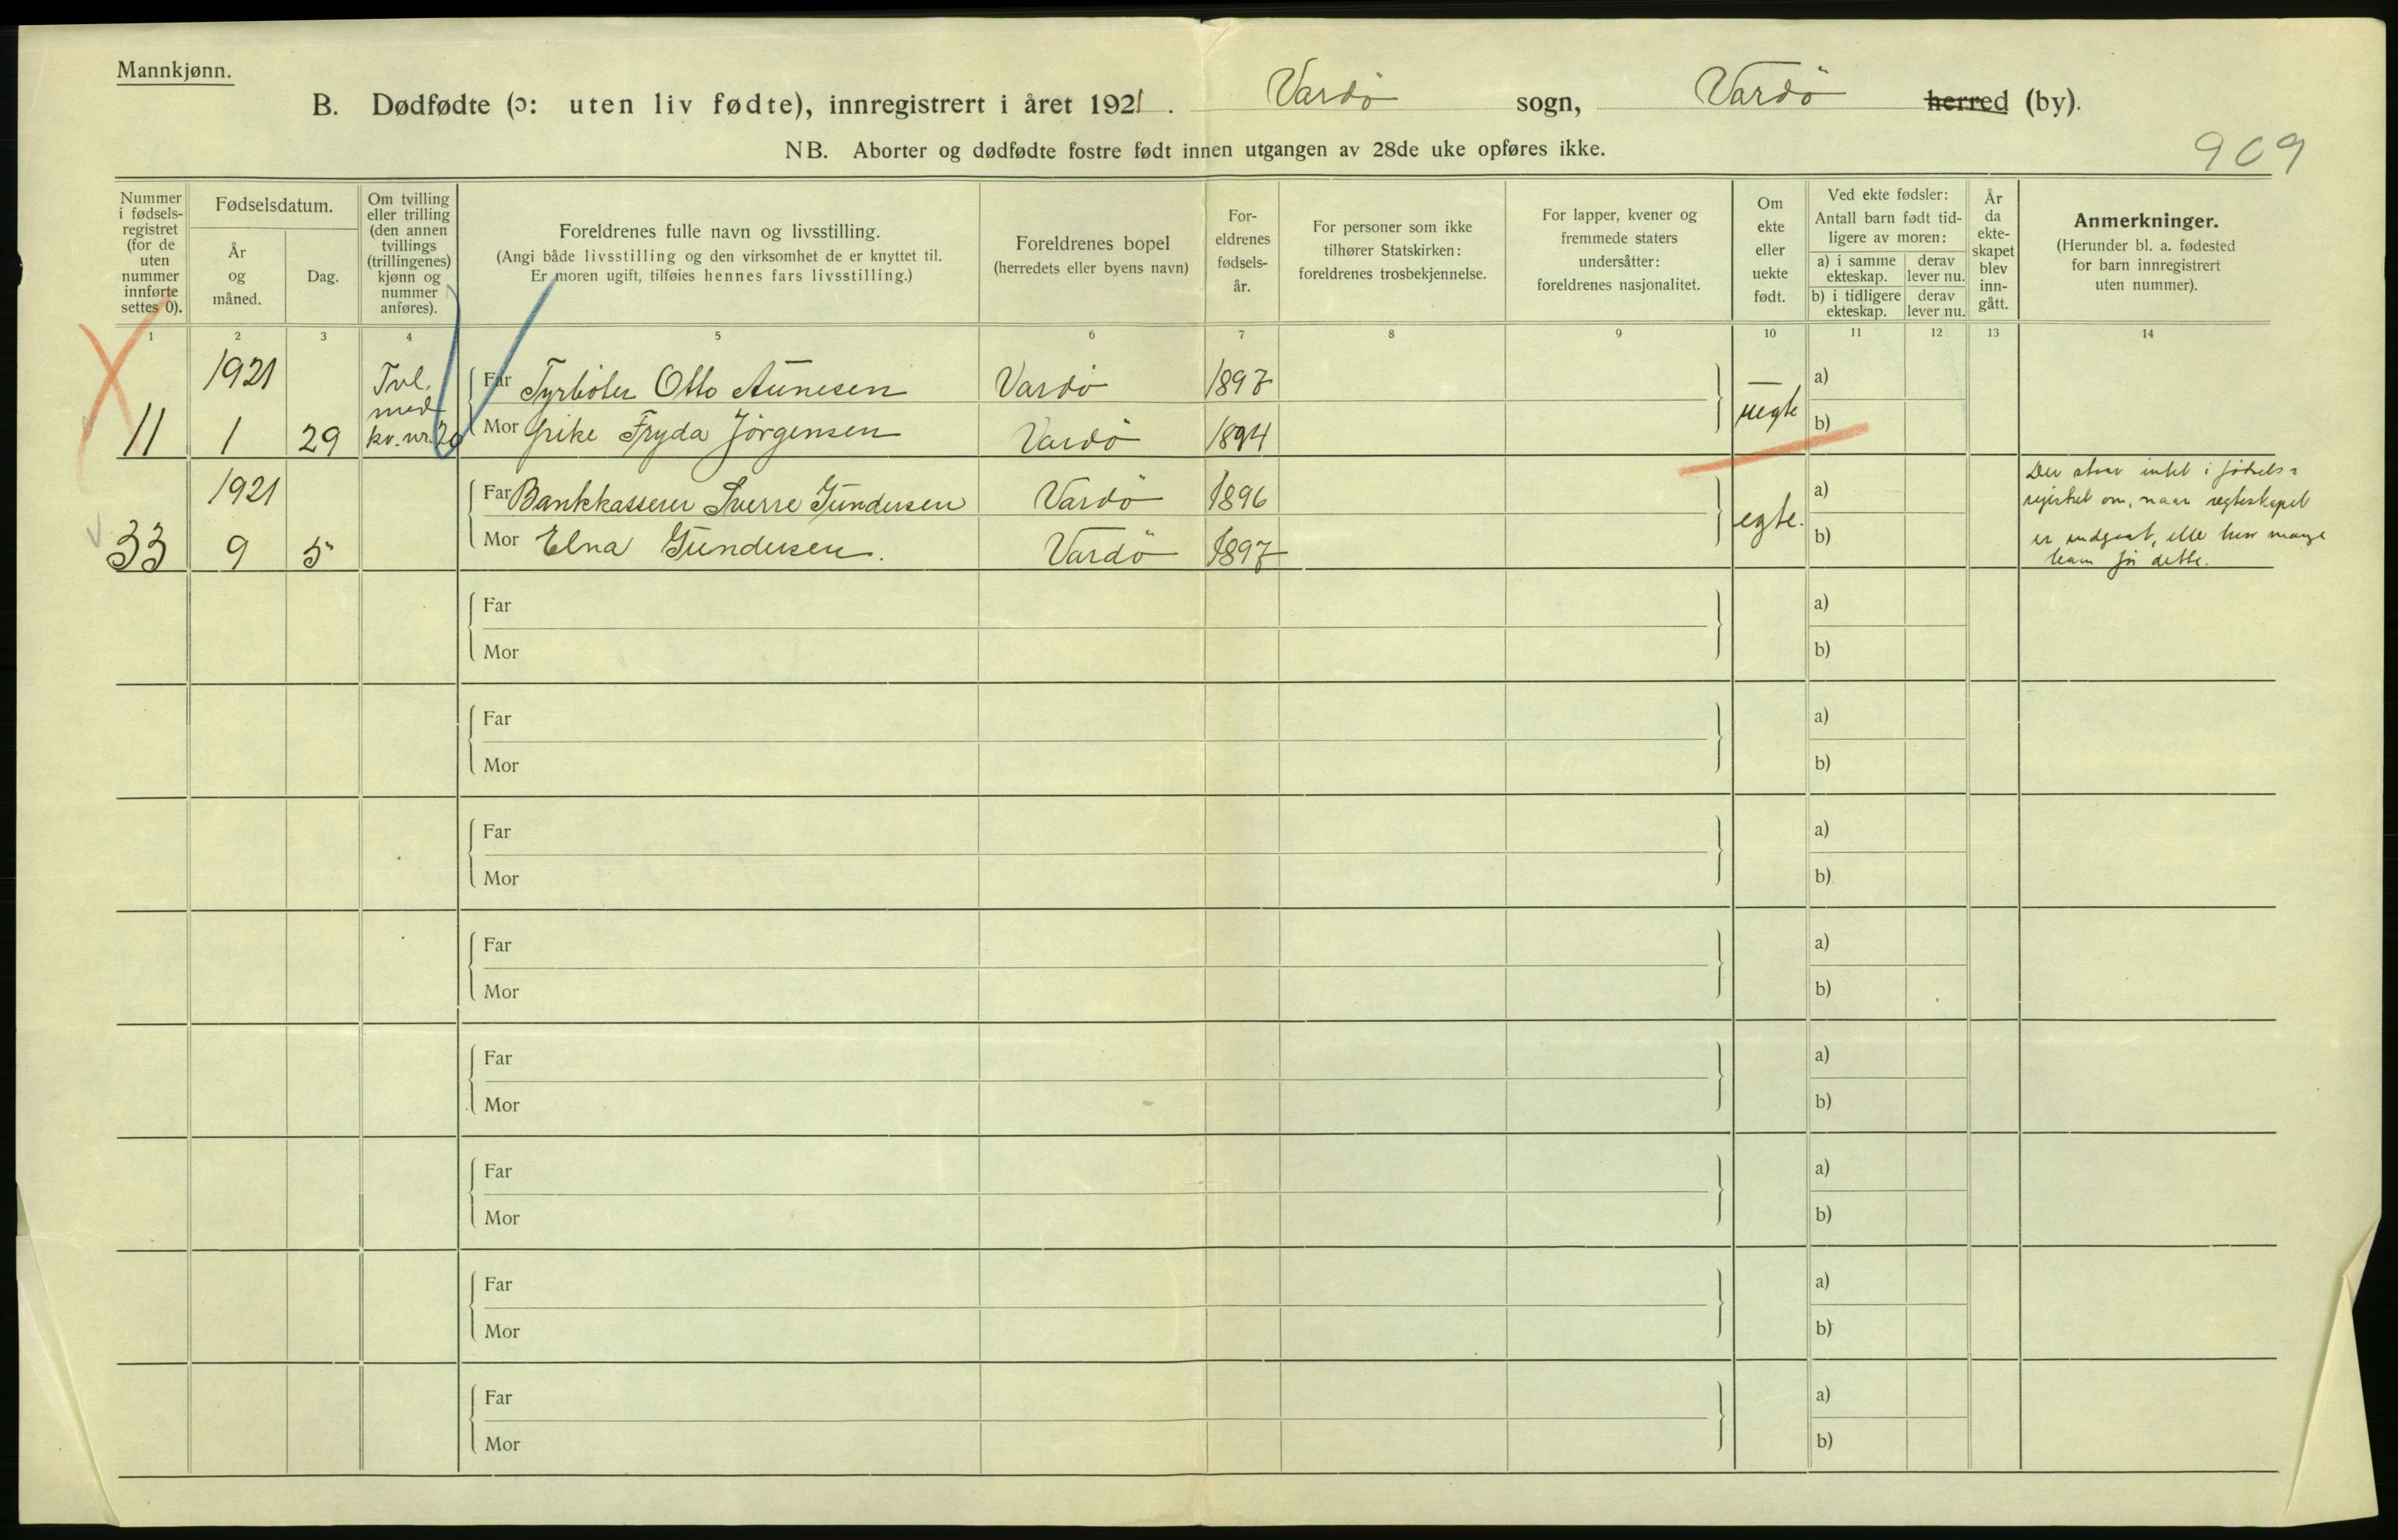 Mannkjønn.
B. Dødfødte (ɔ: uten liv fødte), innregistrert i året 1921. Vardö sogn, Vardö herred (by).
NB. Aborter og dødfødte fostre født innen utgangen av 28de uke opføres ikke.
909
Nummer i fødsels-registret (for de uten nummer innførte settes 0).
Fødselsdatum.
År og måned.
Dag.
Om tvilling eller trilling (den annen tvillings (trillingenes) kjønn og nummer anføres).
Foreldrenes fulle navn og livsstilling.
(Angi både livsstilling og den virksomhet de er knyttet til.
Er moren ugift, tilføies hennes fars livsstilling.)
Foreldrenes bopel
(herredets eller byens navn)
For-eldrenes fødsels-år.
For personer som ikke tilhører Statskirken: foreldrenes trosbekjennelse.
For lapper, kvener og fremmede staters undersåtter: foreldrenes nasjonalitet.
Om ekte eller uekte født.
Ved ekte fødsler:
Antall barn født tid-ligere av moren:
a) i samme ekteskap.
derav lever nu.
b) i tidligere ekteskap.
derav lever nu.
År da ekte-skapet blev inn-gått.
Anmerkninger.
(Herunder bl. a. fødested for barn innregistrert uten nummer).
1 2 3 4 5 6 7 8 9 10 11 12 13 14
1921 Tvl. Far Fyrböter Otto Aunesen Vardö 1897 a)
med uegte
11 1 29 kv. nr. 20 Mor pike Fryda Jörgensen Vardö 1894 b)
1921 Far Bankkasserer Sverre Gundersen Vardö 1896 a)
egte.
33 9 5 Mor Elna Gundersen. Vardö 1897 b)
Der staar intet i födsels=
registret om, naar egteskapet
er indgaat, eller hvor mange
barn för dette.
Far a)
Mor b)
Far a)
Mor b)
Far a)
Mor b)
Far a)
Mor b)
Far a)
Mor b)
Far a)
Mor b)
Far a)
Mor b)
Far a)
Mor b)